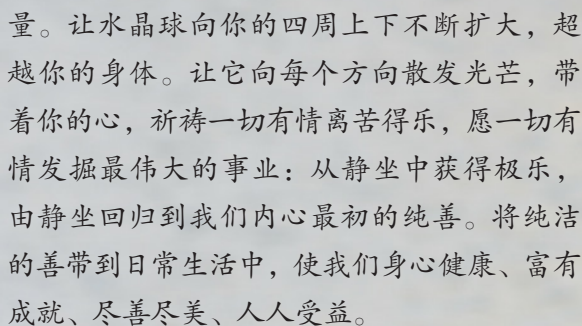 量。让水晶球向你的四周上下不断扩大，超
越你的身体。让它向每个方向散发光芒，带
着你的心，祈祷一切有情离苦得乐，愿一切有
情发掘最伟大的事业：从静坐中获得极乐，
由静坐回归到我们内心最初的纯善。将纯洁
的善带到日常生活中，使我们身心健康、富有
成就、尽善尽美、人人受益。